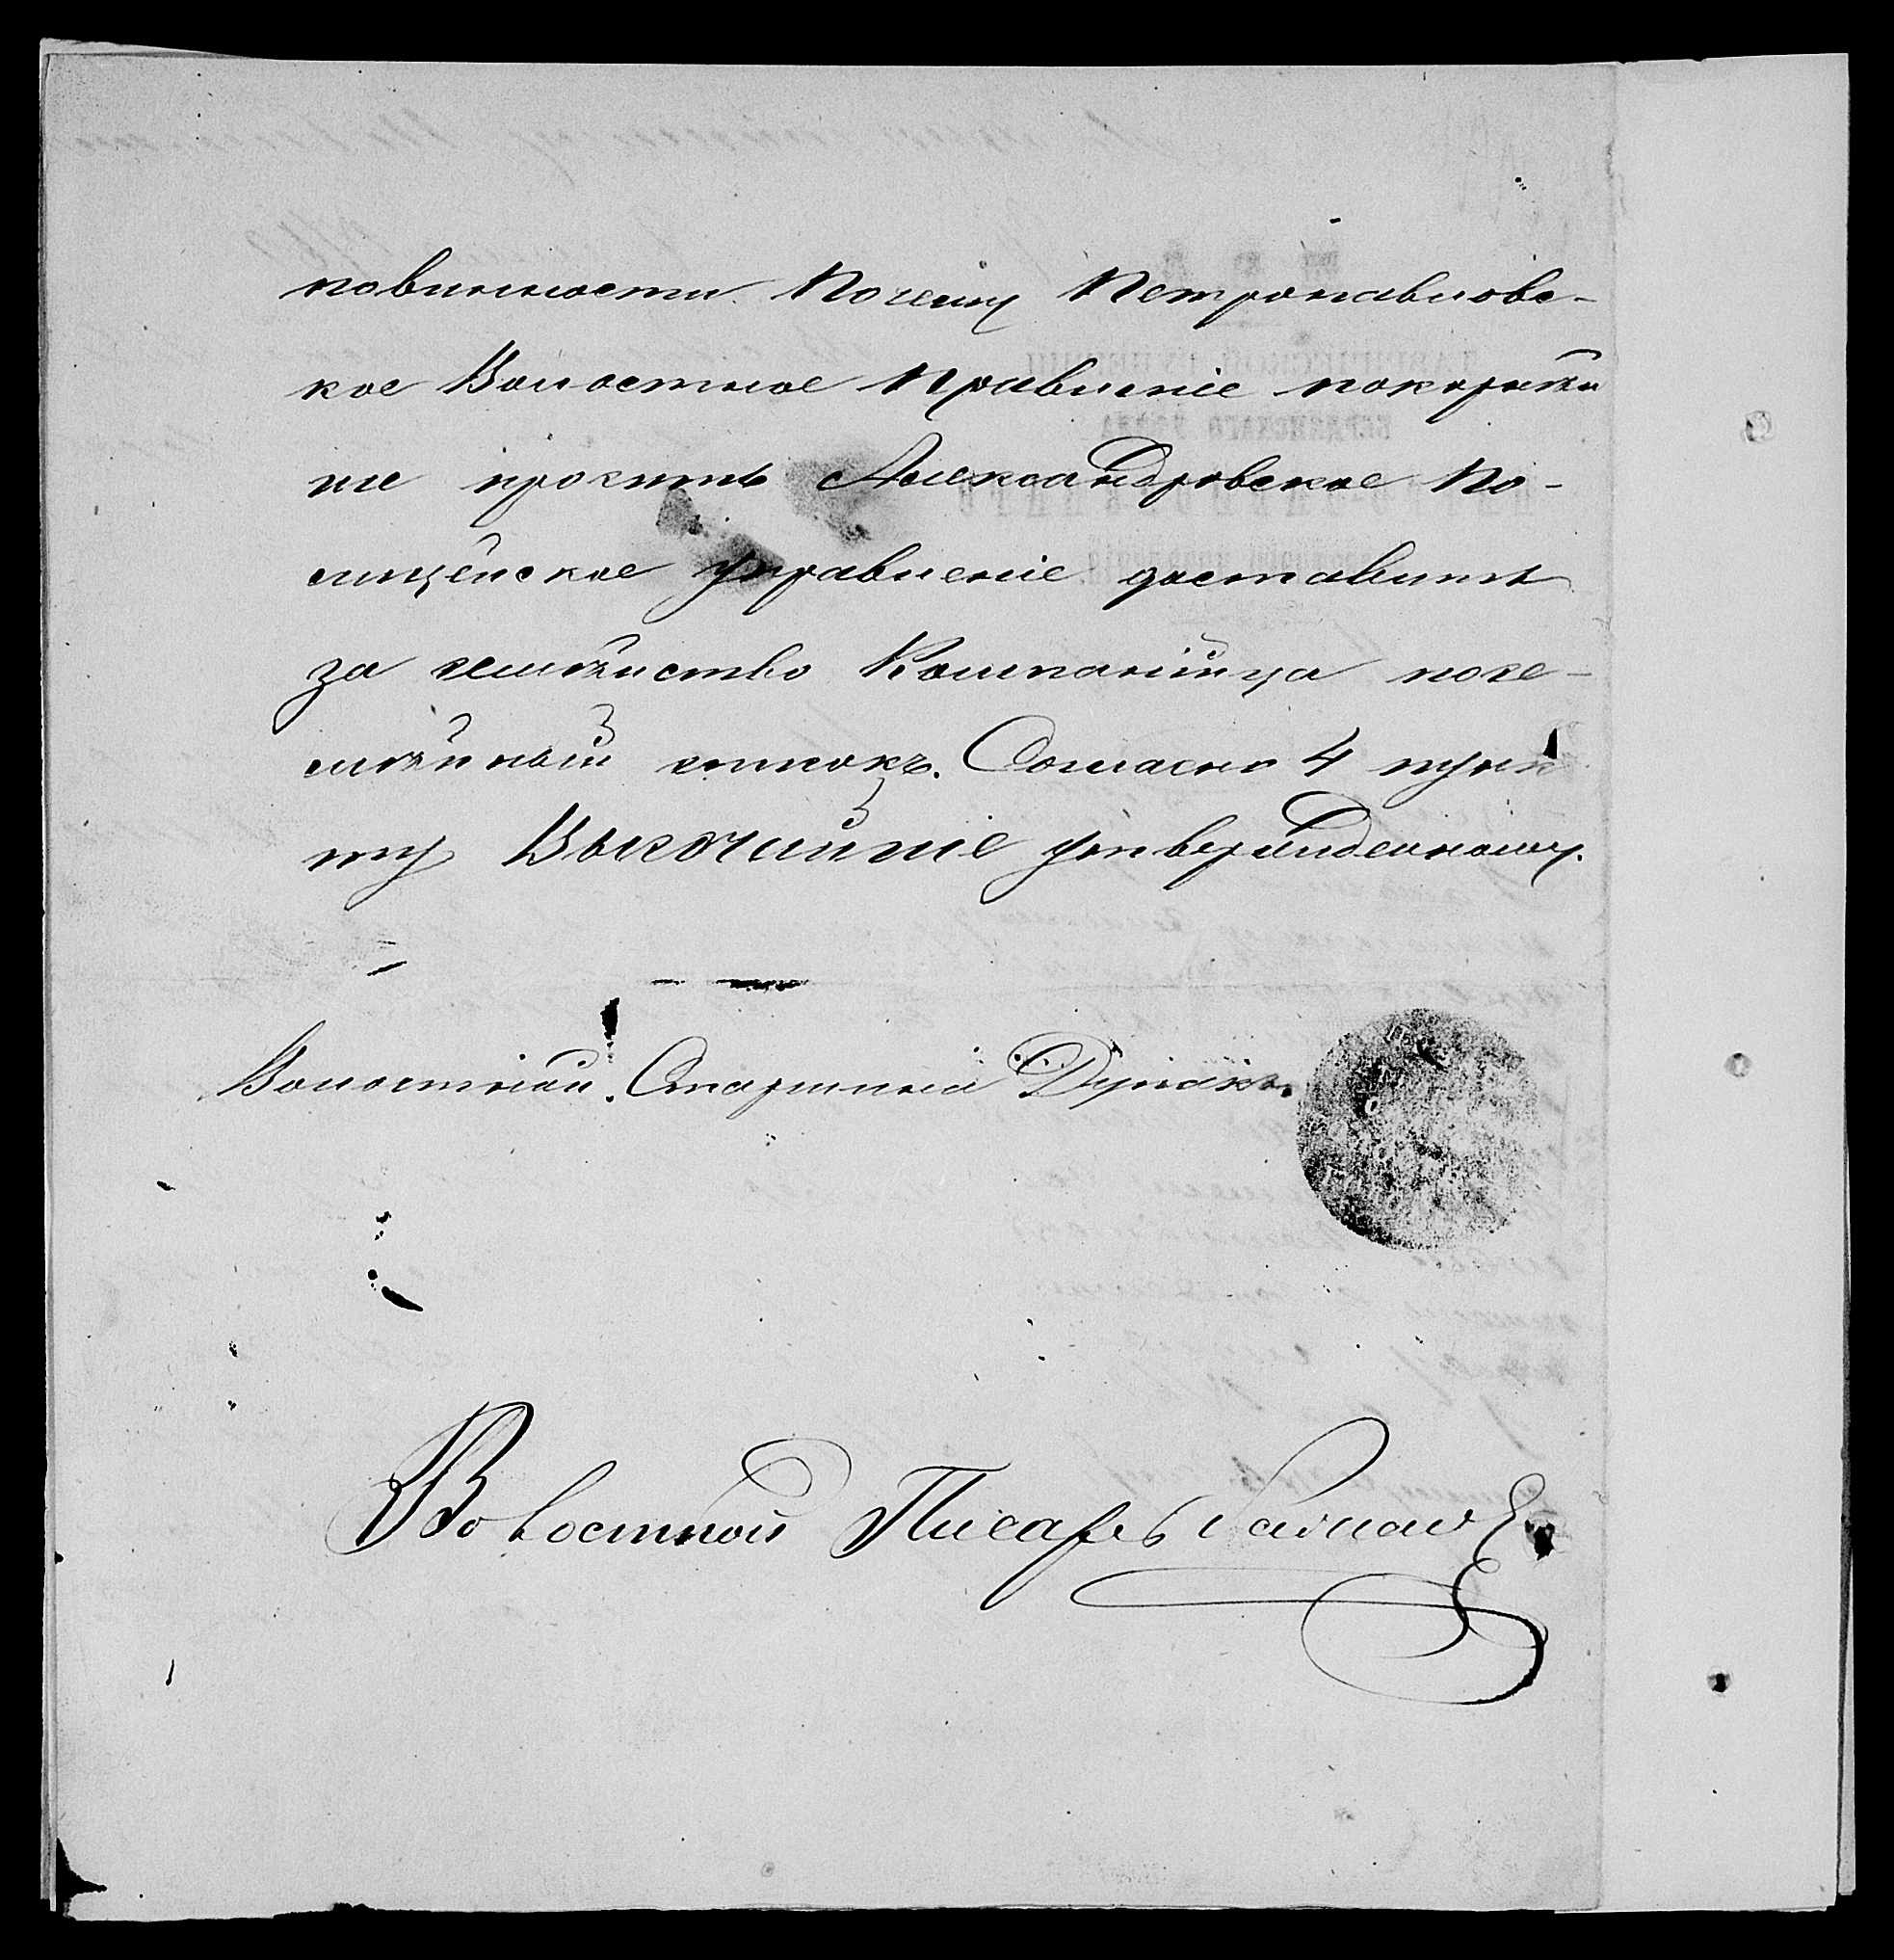 повинности. Почему Петропавловс-
кое Волостное Правленіе покорнѣй
ше проситъ Александровское По-
лицейское управленіе доставить
за семѣйство Компанійца посе-
мѣйный списокъ. Согласно 4 пунк
ту Высочайше утвержденному.
Волостной Старшина
Волостной Писарь